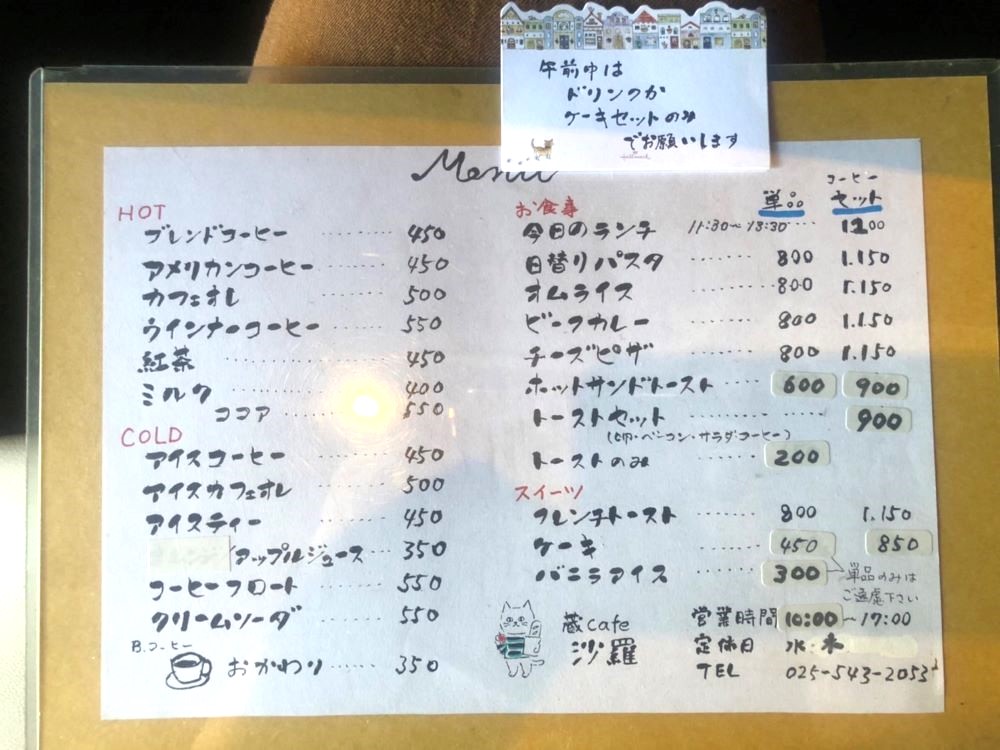 午前中は
ドリンクか
ケーキセットのみ
でお願いします
Hallmark
Menu
HOT
ブレンドコーヒー ……… 450
アメリカンコーヒー ……… 450
カフェオレ ……… 500
ウインナーコーヒー ……… 550
紅茶 ……… 450
ミルク ……… 400
ココア ……… 550
COLD
アイスコーヒー ……… 450
アイスカフェオレ ……… 500
アイスティー ……… 450
アップルジュース ……… 350
コーヒーフロート ……… 550
クリームソーダ ……… 550
B.コーヒー
おかわり ……… 350
お食事 単品 コーヒーセット
今日のランチ 11:30〜13:30 … 1200
日替りパスタ ……… 800 1.150
オムライス ……… 800 1.150
ビーフカレー ……… 800 1.150
チーズピザ ……… 800 1.150
ホットサンドトースト ……… 600 900
トーストセット ……… 900
(卵・ベーコン・サラダ・コーヒー)
トーストのみ ……… 200
スイーツ
フレンチトースト ……… 800 1.150
ケーキ ……… 450 850
バニラアイス ……… 300
単品のみは
ご遠慮下さい
蔵cafe
沙羅
営業時間 10:00〜17:00
定休日 水・木
TEL 025-543-2053